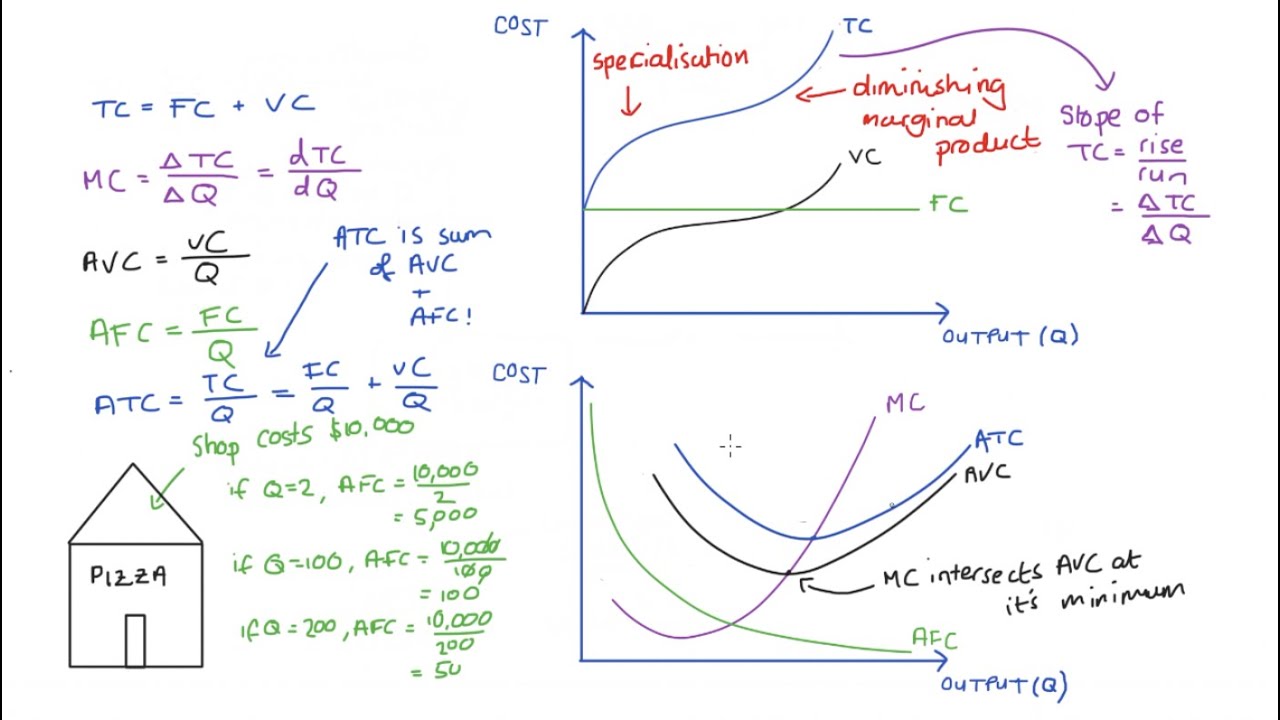 TC = FC + VC
MC = ΔTC/ΔQ = dTC/dQ
AVC = VC/Q
AFC = FC/Q
ATC is sum
of AVC
+
AFC!
ATC = TC/Q = FC/Q + VC/Q
Shop costs $10,000
PIZZA
if Q=2, AFC = 10,000/2
= 5,000
if Q=100, AFC = 10,000/100
= 100
if Q=200, AFC = 10,000/200
= 50
COST
TC
specialisation
diminishing
marginal
product
VC
FC
OUTPUT (Q)
Slope of
TC = rise/run
= ΔTC/ΔQ
COST
MC
ATC
AVC
MC intersects AVC at
it's minimum
AFC
OUTPUT (Q)